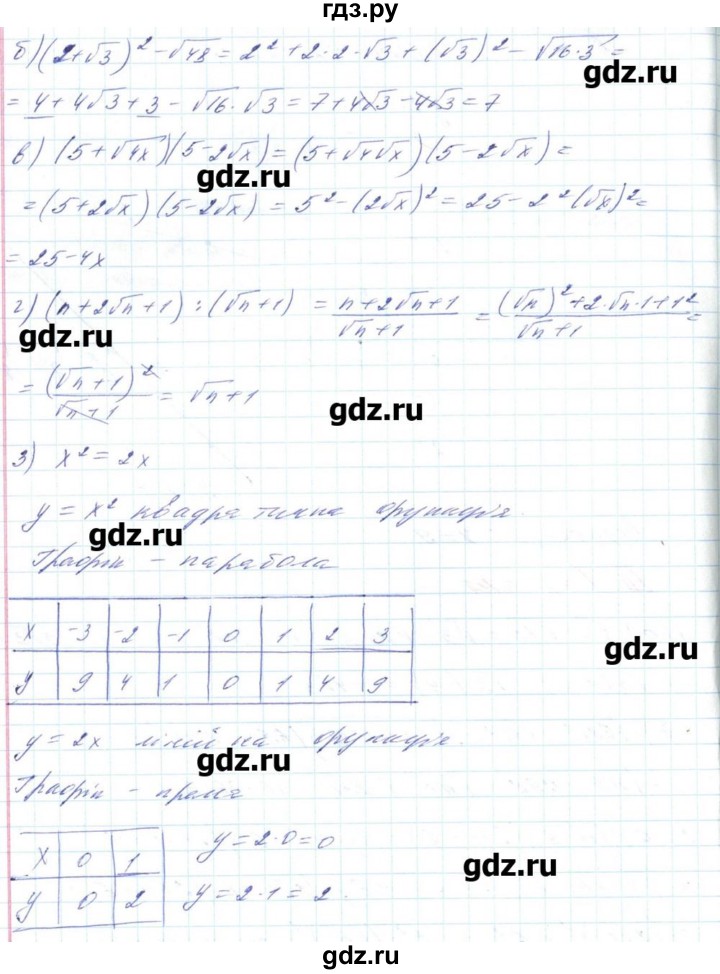 гдз.ру
б) (2+√3)² - √48 = 2² + 2·2·√3 + (√3)² - √16·3 =
gdz.ru
= 4 + 4√3 + 3 - √16·√3 = 7 + 4√3 - 4√3 = 7
в) (5+√4x)(5-2√x) = (5+√4√x)(5-2√x) =
gdz.ru
= (5+2√x)(5-2√x) = 5² - (2√x)² = 25 - 2²(√x)² =
= 25-4x
г) (n+2√n+1) : (√n+1) = (n+2√n+1)/(√n+1) = ((√n)²+2·√n·1+1²)/(√n+1) =
gdz.ru
= (√n+1)²/(√n+1) = √n+1
gdz.ru
3) x² = 2x
y = x² квадратична функція.
gdz.ru
Графік - парабола
x -3 -2 -1 0 1 2 3
gdz.ru
y 9 4 1 0 1 4 9
y = 2x лінійна функція.
gdz.ru
Графік - пряма
x 0 1 y = 2·0 = 0
gdz.ru
y 0 2 y = 2·1 = 2.
gdz.ru